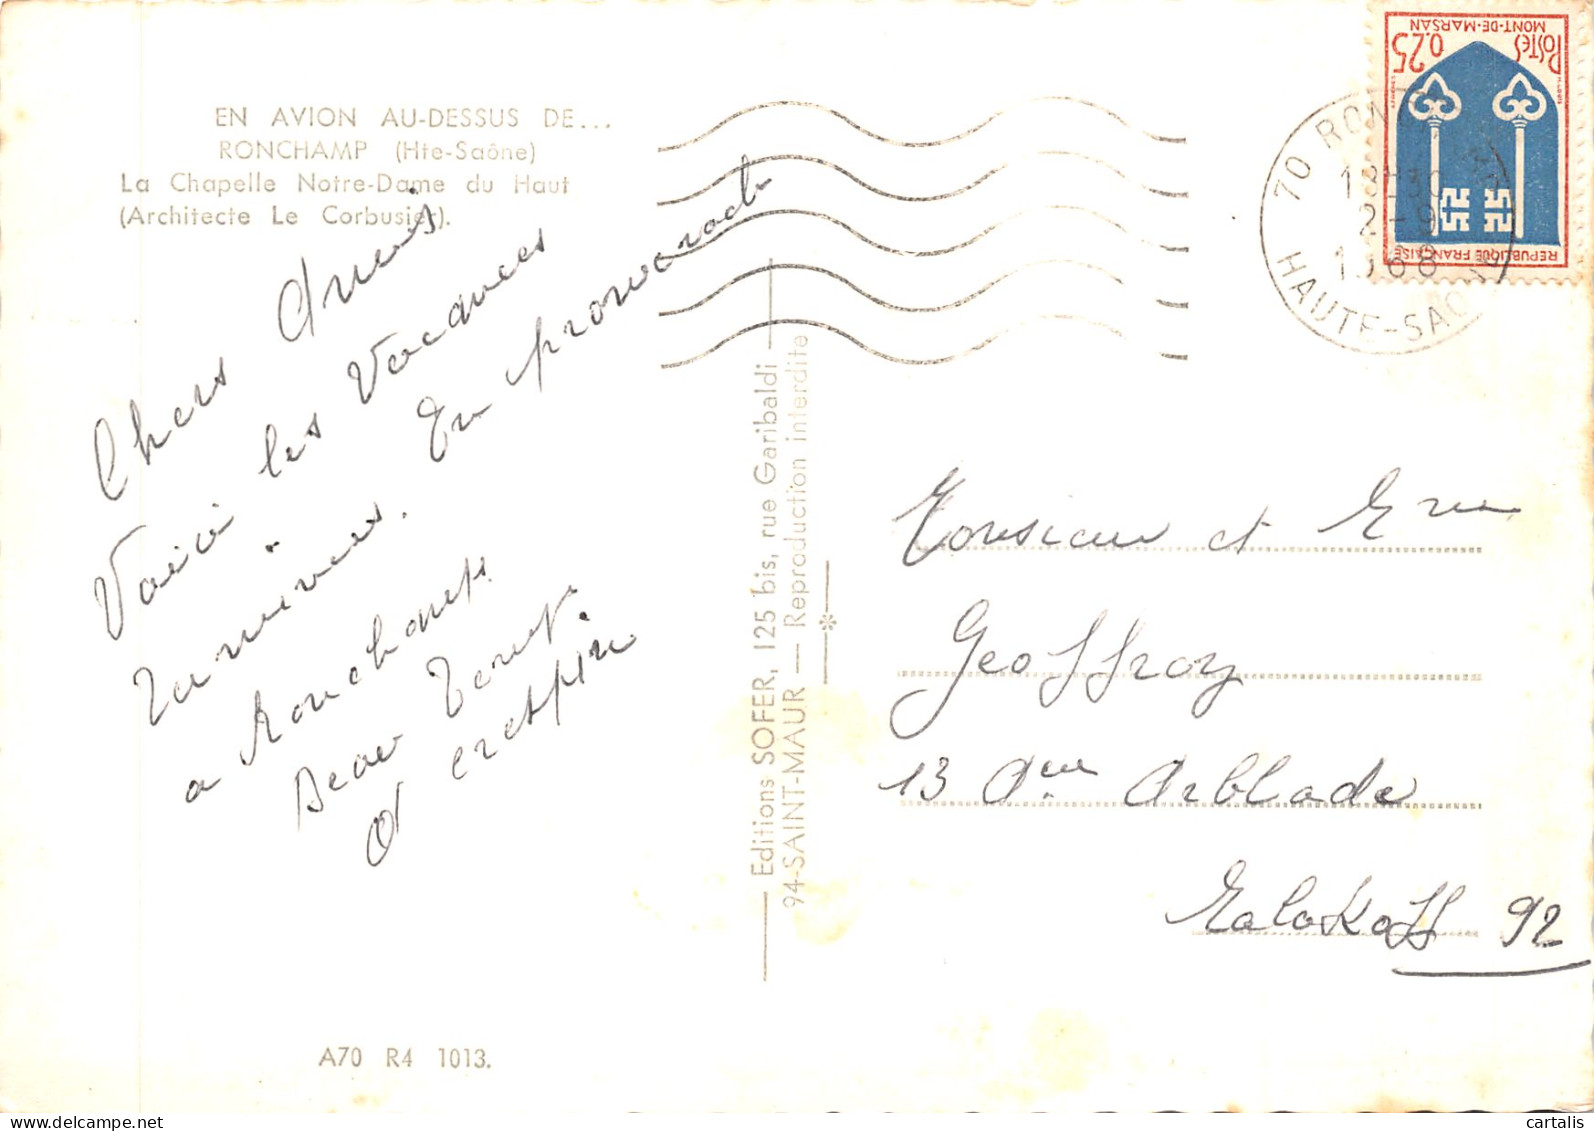 EN AVION AU-DESSUS DE...
RONCHAMP (Hte-Saône)
La Chapelle Notre-Dame du Haut
(Architecte Le Corbusier).
Chers Amis
Voici les vacances
En
a Ronchamp
Beau Temps
Editions SOFER, 125 bis, rue Garibaldi
94-SAINT-MAUR — Reproduction interdite
POSTES
0,25
MONT-DE-MARSAN
REPUBLIQUE FRANÇAISE
70
2-9
1968
HAUTE-SAONE
Monsieur et Mme
Geoffroy
13 Arblade
Malakoff 92
A70 R4 1013.